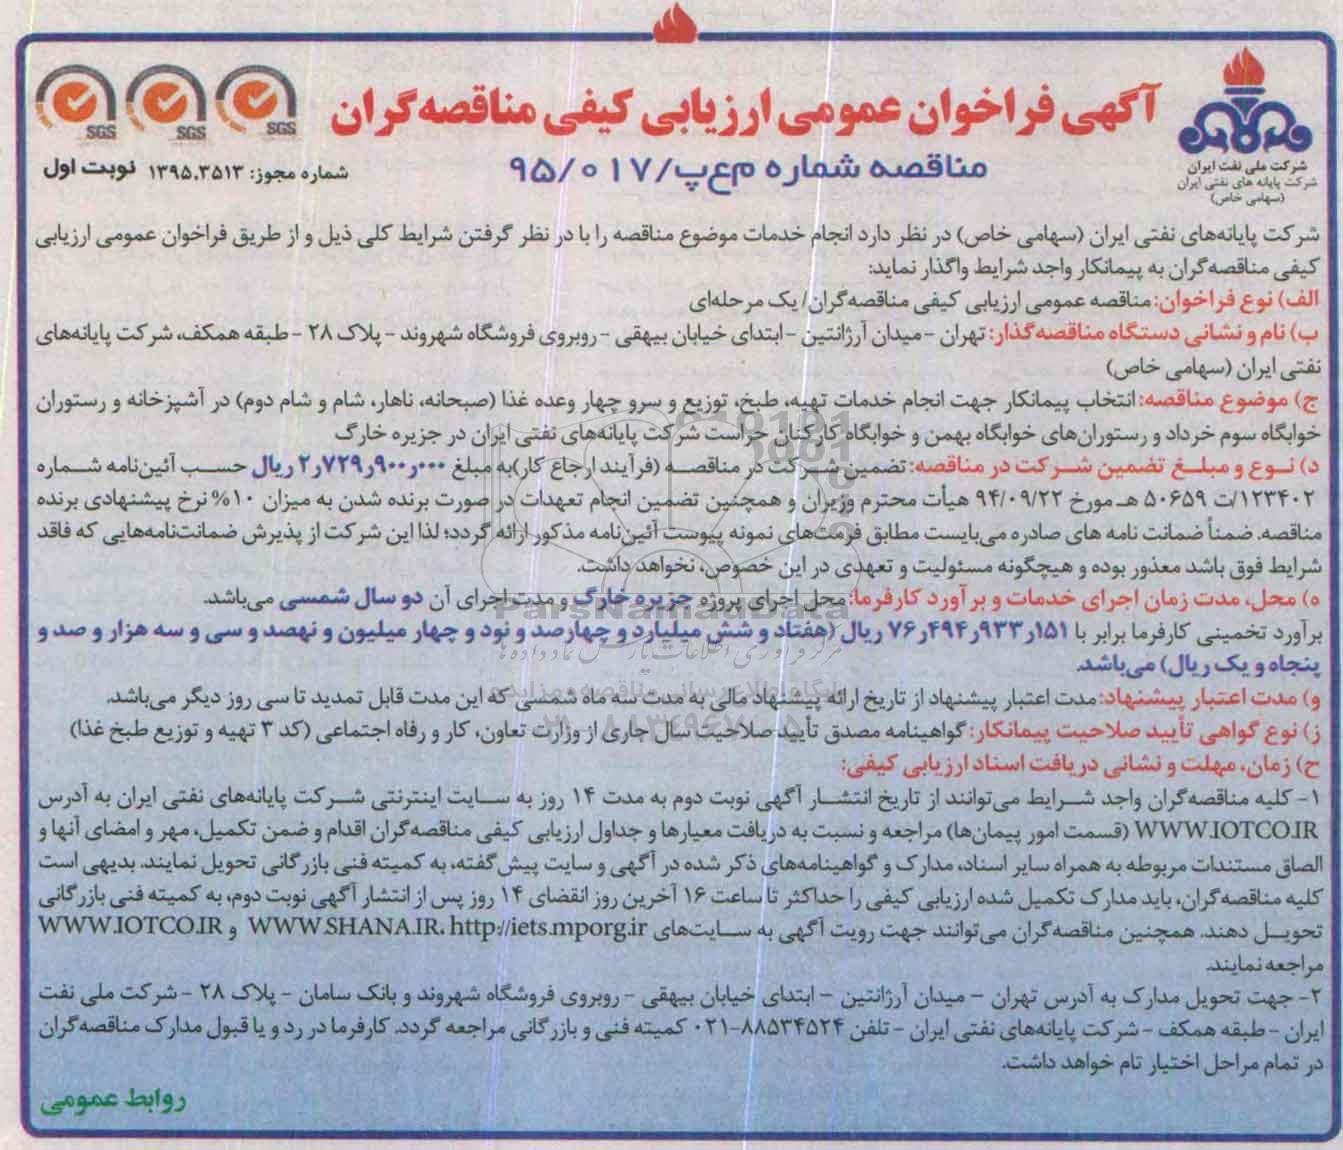 آگهی فراخوان عمومی ارزیابی کیفی مناقصه‌گران
مناقصه شماره م‌ع‌پ/۹۵/۰۱۷
شماره مجوز: ۱۳۹۵.۳۵۱۳ نوبت اول
SGS SGS SGS
شرکت ملی نفت ایران
شرکت پایانه های نفتی ایران
(سهامی خاص)
شرکت پایانه‌های نفتی ایران (سهامی خاص) در نظر دارد انجام خدمات موضوع مناقصه را با در نظر گرفتن شرایط کلی ذیل و از طریق فراخوان عمومی ارزیابی
کیفی مناقصه‌گران به پیمانکار واجد شرایط واگذار نماید:
الف) نوع فراخوان: مناقصه عمومی ارزیابی کیفی مناقصه‌گران/ یک مرحله‌ای
ب) نام و نشانی دستگاه مناقصه‌گذار: تهران - میدان آرژانتین - ابتدای خیابان بیهقی - روبروی فروشگاه شهروند - پلاک ۲۸ - طبقه همکف، شرکت پایانه‌های
نفتی ایران (سهامی خاص)
ج) موضوع مناقصه: انتخاب پیمانکار جهت انجام خدمات تهیه، طبخ، توزیع و سرو چهار وعده غذا (صبحانه، ناهار، شام و شام دوم) در آشپزخانه و رستوران
خوابگاه سوم خرداد و رستوران‌های خوابگاه بهمن و خوابگاه کارکنان حراست شرکت پایانه‌های نفتی ایران در جزیره خارگ
د) نوع و مبلغ تضمین شرکت در مناقصه: تضمین شرکت در مناقصه (فرآیند ارجاع کار) به مبلغ ۲٫۷۲۹٫۹۰۰٫۰۰۰ ریال حسب آئین‌نامه شماره
۱۲۳۴۰۲/ت ۵۰۶۵۹ هـ مورخ ۹۴/۰۹/۲۲ هیأت محترم وزیران و همچنین تضمین انجام تعهدات در صورت برنده شدن به میزان ۱۰% نرخ پیشنهادی برنده
مناقصه. ضمناً ضمانت نامه های صادره می‌بایست مطابق فرمت‌های نمونه پیوست آئین‌نامه مذکور ارائه گردد؛ لذا این شرکت از پذیرش ضمانت‌نامه‌هایی که فاقد
شرایط فوق باشد معذور بوده و هیچگونه مسئولیت و تعهدی در این خصوص، نخواهد داشت.
ه) محل، مدت زمان اجرای خدمات و برآورد کارفرما: محل اجرای پروژه جزیره خارگ و مدت اجرای آن دو سال شمسی می‌باشد.
برآورد تخمینی کارفرما برابر با ۷۶٫۴۹۴٫۹۳۳٫۱۵۱ ریال (هفتاد و شش میلیارد و چهارصد و نود و چهار میلیون و نهصد و سی و سه هزار و صد و
پنجاه و یک ریال) می‌باشد.
و) مدت اعتبار پیشنهاد: مدت اعتبار پیشنهاد از تاریخ ارائه پیشنهاد مالی به مدت سه ماه شمسی که این مدت قابل تمدید تا سی روز دیگر می‌باشد.
ز) نوع گواهی تأیید صلاحیت پیمانکار: گواهینامه مصدق تأیید صلاحیت سال جاری از وزارت تعاون، کار و رفاه اجتماعی (کد ۳ تهیه و توزیع طبخ غذا)
ح) زمان، مهلت و نشانی دریافت اسناد ارزیابی کیفی:
۱- کلیه مناقصه‌گران واجد شرایط می‌توانند از تاریخ انتشار آگهی نوبت دوم به مدت ۱۴ روز به سایت اینترنتی شرکت پایانه‌های نفتی ایران به آدرس
WWW.IOTCO.IR (قسمت امور پیمان‌ها) مراجعه و نسبت به دریافت معیارها و جداول ارزیابی کیفی مناقصه‌گران اقدام و ضمن تکمیل، مهر و امضای آنها و
الصاق مستندات مربوطه به همراه سایر اسناد، مدارک و گواهینامه‌های ذکر شده در آگهی و سایت پیش‌گفته، به کمیته فنی بازرگانی تحویل نمایند. بدیهی است
کلیه مناقصه‌گران، باید مدارک تکمیل شده ارزیابی کیفی را حداکثر تا ساعت ۱۶ آخرین روز انقضای ۱۴ روز پس از انتشار آگهی نوبت دوم، به کمیته فنی بازرگانی
تحویل دهند. همچنین مناقصه‌گران می‌توانند جهت رویت آگهی به سایت‌های WWW.SHANA.IR، http://iets.mporg.ir و WWW.IOTCO.IR
مراجعه نمایند.
۲- جهت تحویل مدارک به آدرس تهران - میدان آرژانتین - ابتدای خیابان بیهقی - روبروی فروشگاه شهروند و بانک سامان - پلاک ۲۸ - شرکت ملی نفت
ایران - طبقه همکف - شرکت پایانه‌های نفتی ایران - تلفن ۸۸۵۳۴۵۲۴-۰۲۱ کمیته فنی و بازرگانی مراجعه گردد. کارفرما در رد و یا قبول مدارک مناقصه‌گران
در تمام مراحل اختیار تام خواهد داشت.
روابط عمومی
ParsNamadData